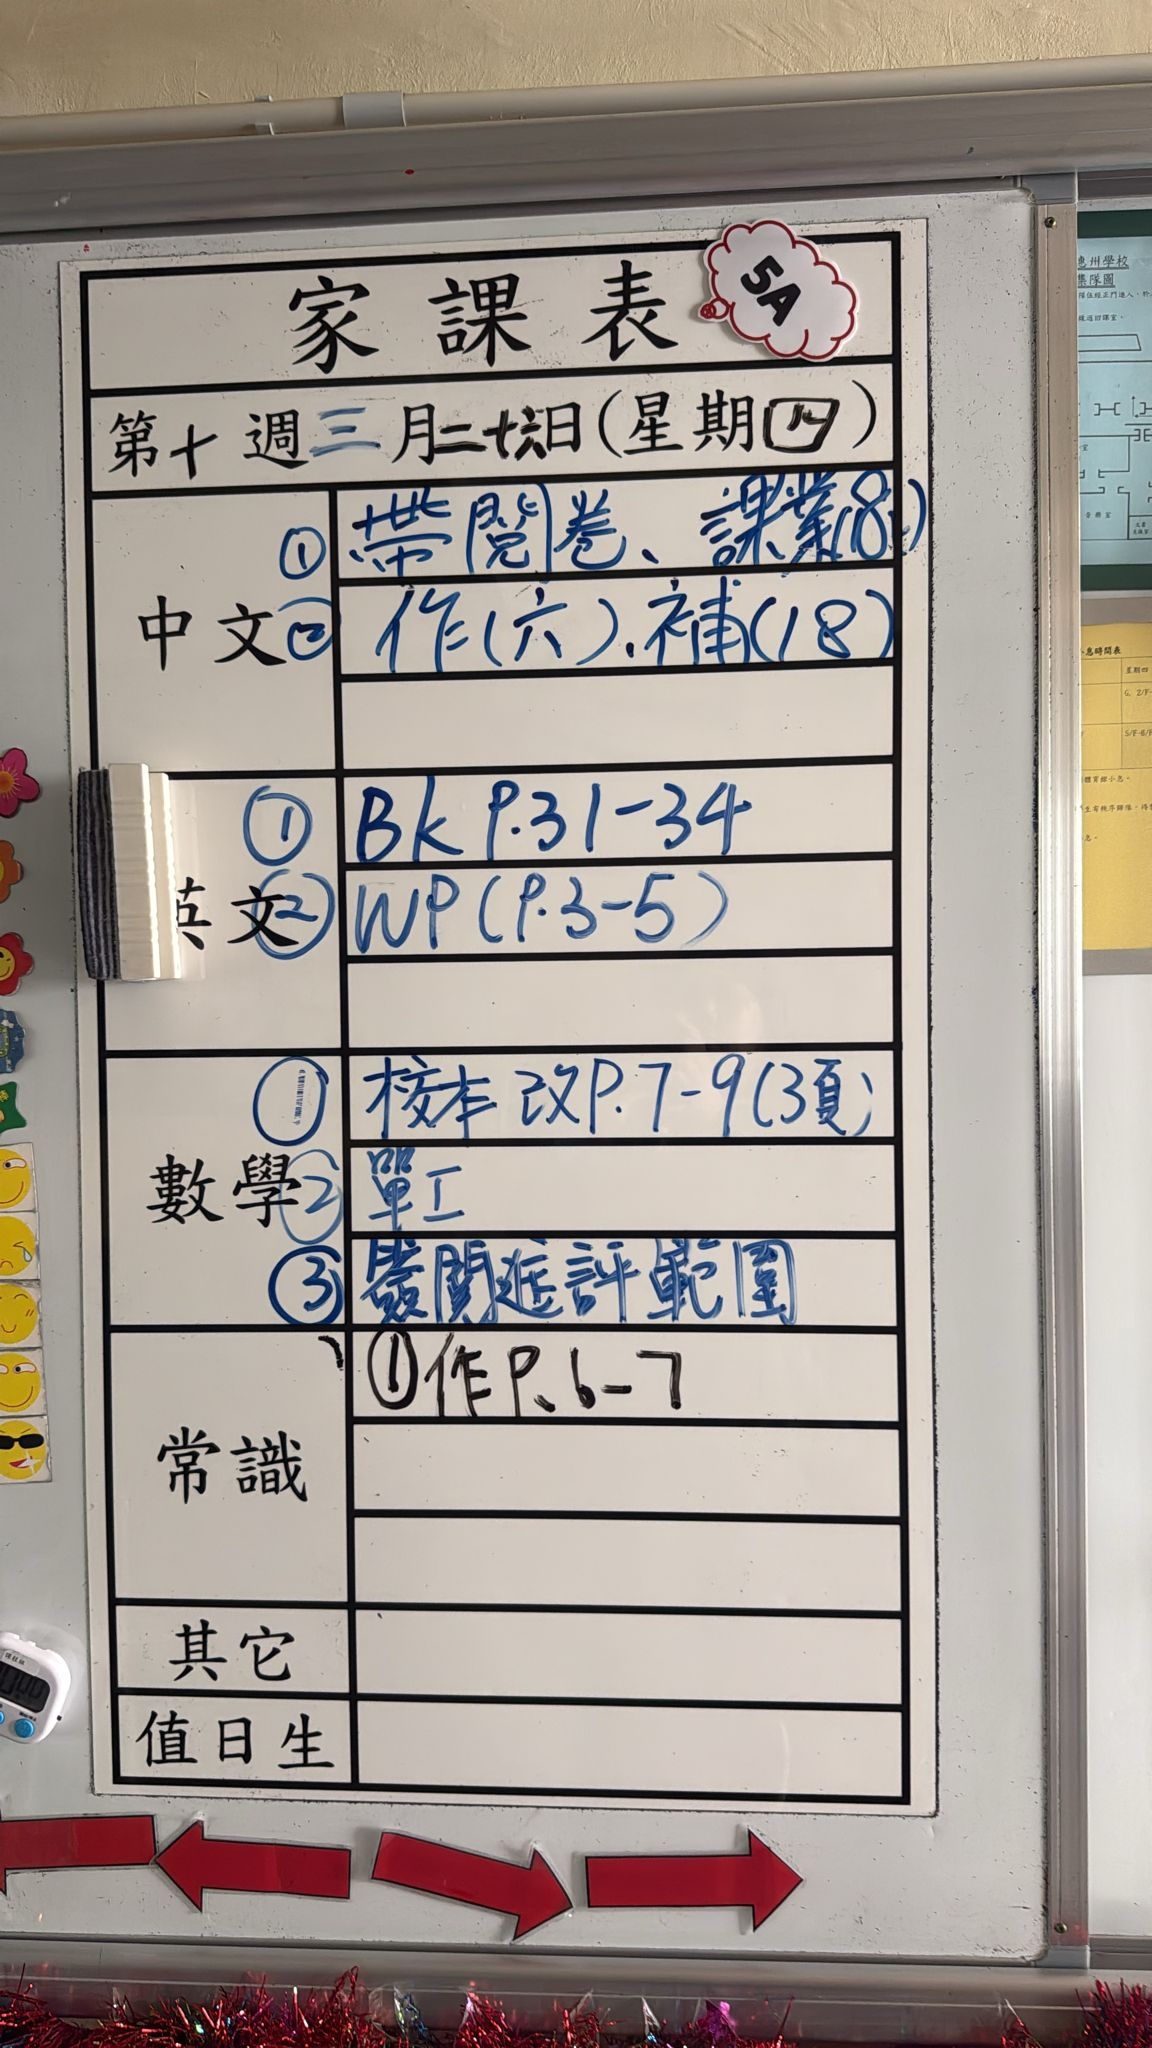 家課表
5A
第十週三月二十六日(星期四)
中文
① 帶閱卷、課業(8)
② 作(六)、補(18)
英文
① Bk P.31-34
② WP (P.3-5)
數學
① 校本改P.7-9(3頁)
② 單工
③ 簽閱進評範圍
常識
①作P.6-7
其它
值日生
惠州學校
集隊圖
音樂室
息時間表
星期四